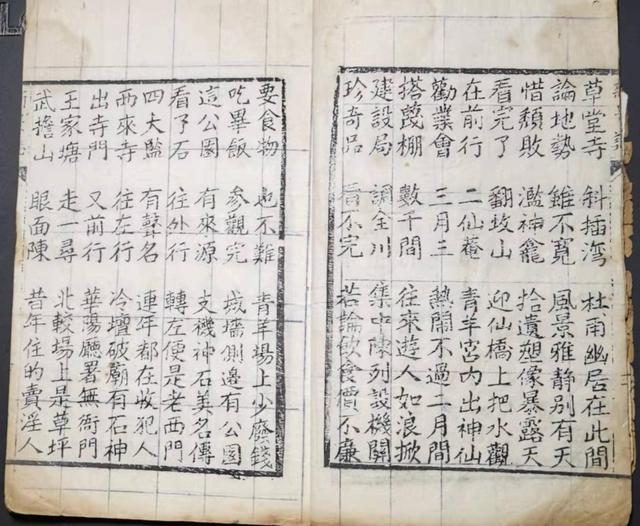 草堂寺 斜插湾 杜甫幽居在此間
論地勢 雖不寬 風景雅静別有天
惜頹敗 濫神龕 拾遺塑像暴露天
看完了 翻坟山 迎仙橋上把水觀
在前行 二仙菴 青羊宮内出神仙
勸業會 三月三 熱鬧不過二月間
搭蔑棚 數千間 往來遊人如浪掀
建設局 調全川 集中陳列設機關
珍奇品 看不完 若論飲食價不廉
要食物 也不難 青羊場上少廢錢
吃畢飯 參觀完 城墻側邊有公園
這公園 有來源 支機神石美名傳
看了石 往外行 轉左便是老西門
四大監 有聲名 連年都在收犯人
西來寺 往左行 冷壇破廟有石神
出寺門 又前行 華陽廳署無衙門
王家塘 走一尋 北較場上是草坪
武擔山 眼面陳 昔年住的賣淫人